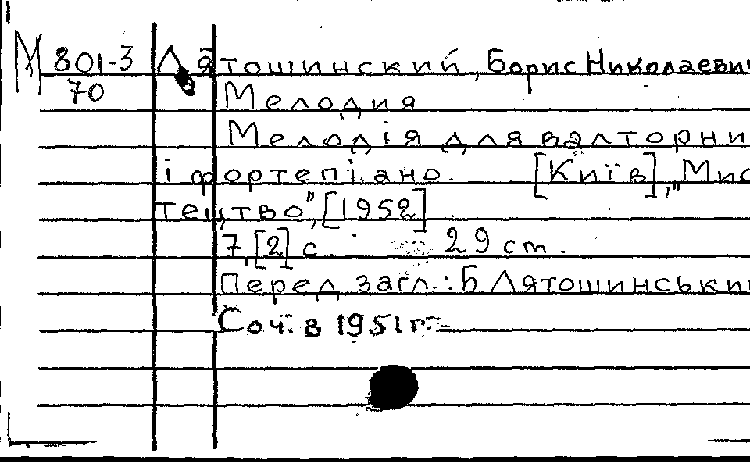 М 801-3 Лятошинский, Борис Николаевич
70 Мелодия
Мелодія для валторни
і фортепіано. [Київ], „Мис
тецтво”, [1952]
7, [2] с. 29 ст.
Перед загл.: Б Лятошинський
Соч. в 1951 г.